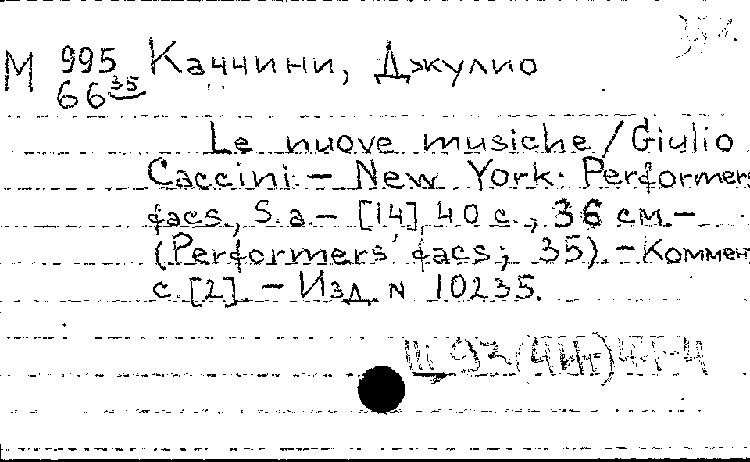 М 995 Каччини, Джулио
66 35
Le nuove musiche / Giulio
Caccini. – New York: Performers
facs., S. a. – [14], 40 с., 36 см. –
(Performers' facs; 35). – Коммен
с. [2]. – Изд. N 10235.
Щ 93(4Ит)4-4